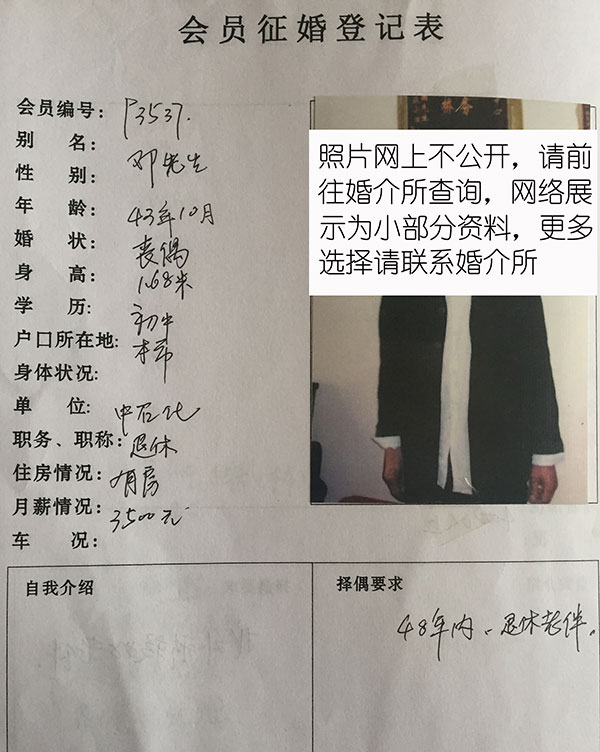 会员征婚登记表
会员编号：P3537.
别 名：邓先生
性 别：
年 龄：43年10月
婚 状：丧偶
身 高：1.68米
学 历：初中
户口所在地：本市
身体状况：
单 位：中石化
职务、职称：退休
住房情况：有房
月薪情况：3500元
车 况：
照片网上不公开，请前
往婚介所查询，网络展
示为小部分资料，更多
选择请联系婚介所
自我介绍
择偶要求
48年内、退休老伴。